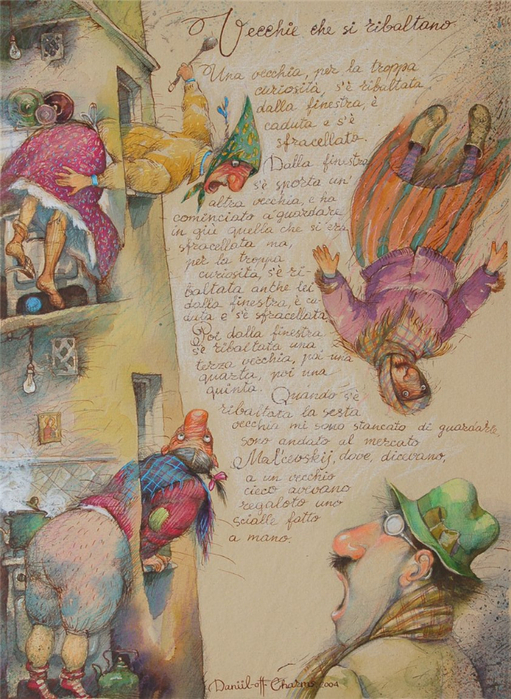 Vecchie che si ribaltano
Una vecchia, per la troppa
curiosità, s'è ribaltata
dalla finestra, è
caduta e s'è
sfracellata.
Dalla finestra
s'è sporta un'
altra vecchia, e ha
cominciato a guardare
in giù quella che si era
sfracellata ma,
per la troppa
curiosità, s'è ri-
baltata anche lei
dalla finestra, è ca-
duta e s'è sfracellata.
Poi dalla finestra
s'è ribaltata una
terza vecchia, poi una
quarta, poi una
quinta.
Quando s'è
ribaltata la sesta
vecchia mi sono stancato di guardarle
sono andato al mercato
Mal'cevskij, dove, dicevano,
a un vecchio
cieco avevano
regalato uno
scialle fatto
a mano.
2004